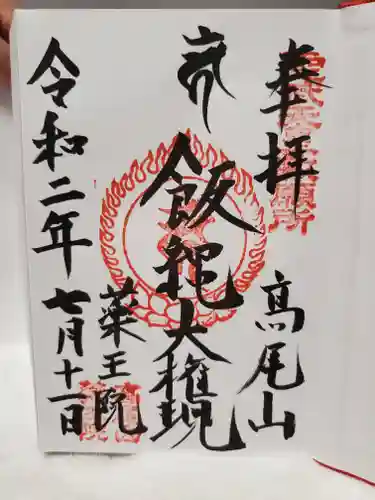 奉拝
高尾山
飯縄大権現
薬王院
令和二年七月十一日